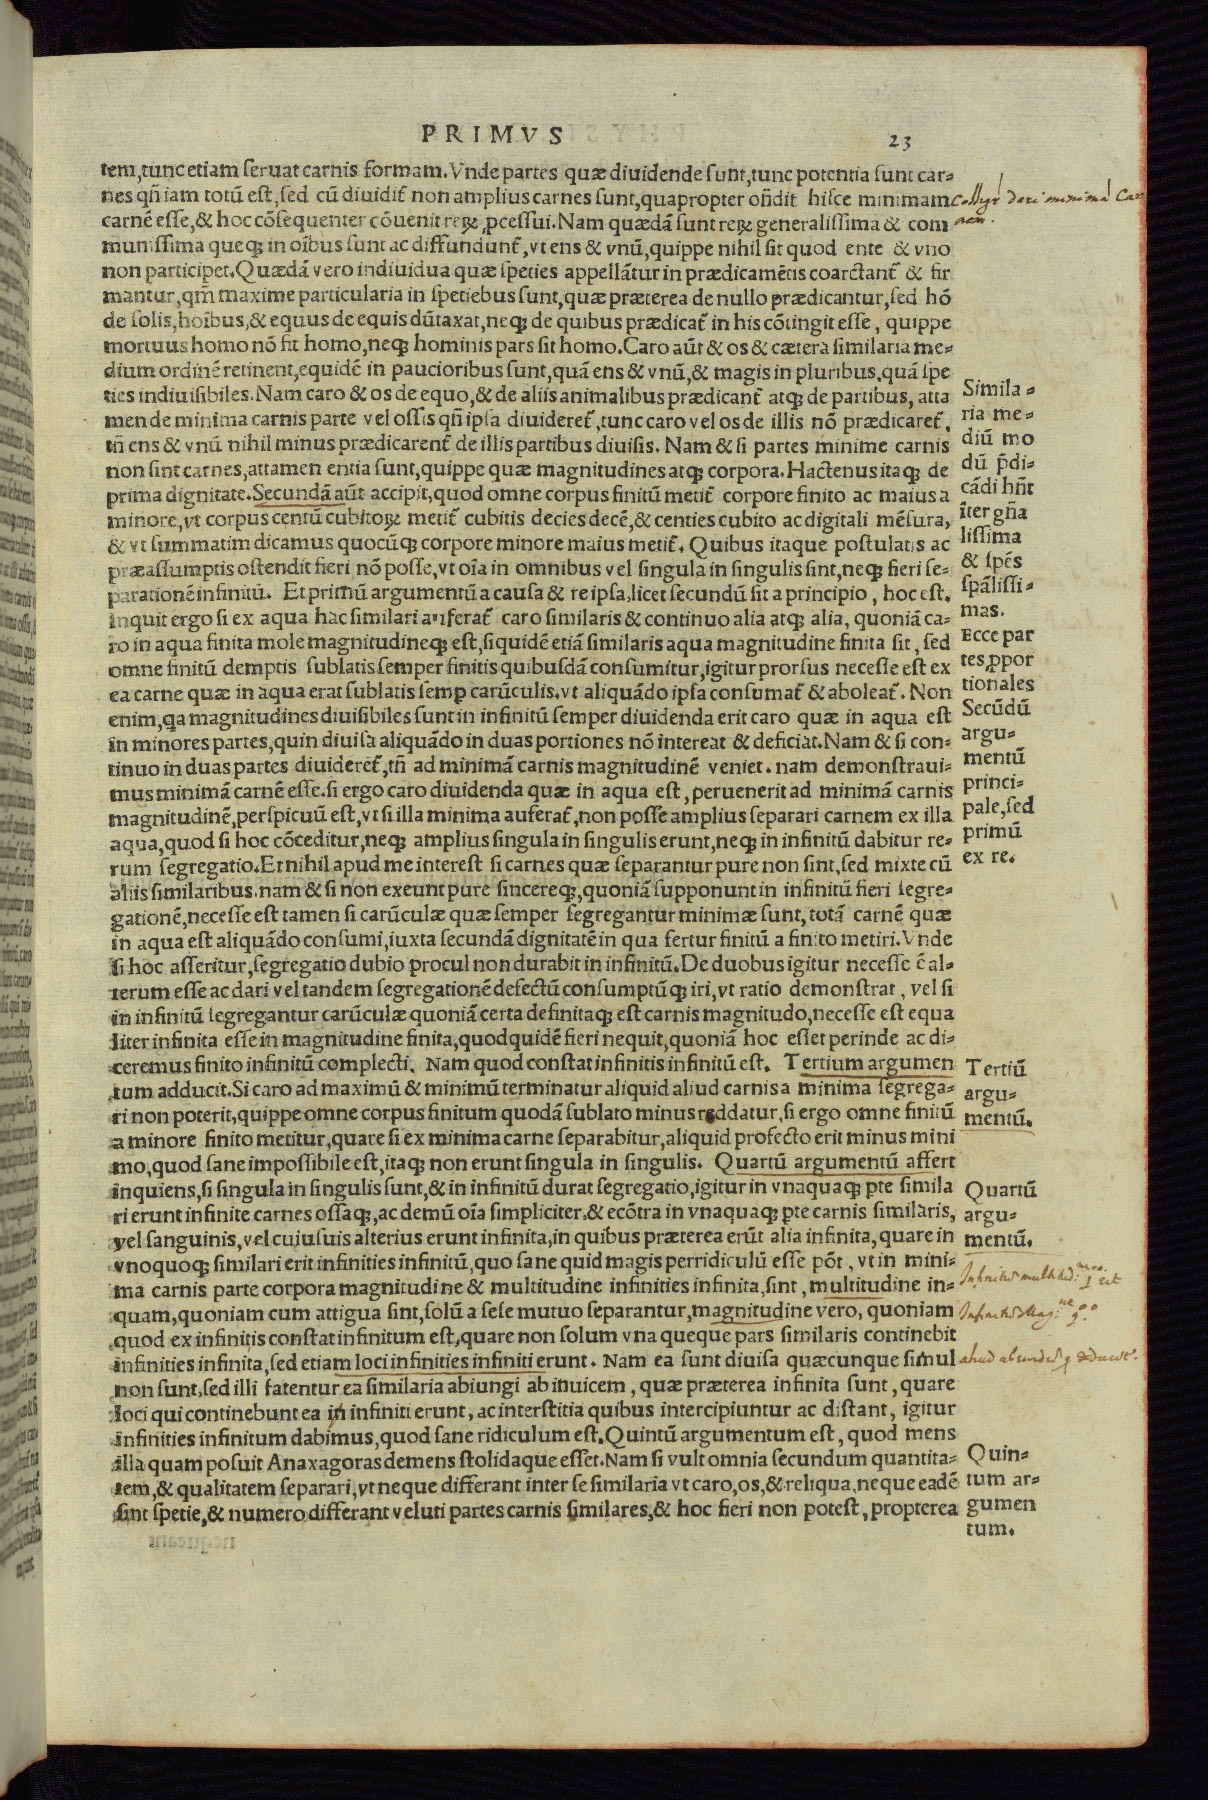 PRIMVS 23
tem,tunc etiam seruat carnis formam.Vnde partes quæ diuidende sunt,tunc potentia sunt car-
nes qñ iam totũ est,sed cũ diuidit̃ non amplius carnes sunt,quapropter oñdit hisce minimam
carnẽ esse,& hoc cõsequenter cõuenit reꝝ ꝓcessui.Nam quædã sunt reꝝ generalissima & com
munissima queqꝫ in oĩbus sunt ac diffundunt̃,vt ens & vnũ,quippe nihil sit quod ente & vno
non participet.Quædã vero indiuidua quæ speties appellãtur in prædicamẽtis coarctant̃ & fir
mantur,qm̃ maxime particularia in spetiebus sunt,quæ præterea de nullo prædicantur,sed hõ
de solis,hoĩbus,& equus de equis dũtaxat,neqꝫ de quibus prædicat̃ in his cõtingit esse, quippe
mortuus homo nõ fit homo,neqꝫ hominis pars sit homo.Caro aũt & os & cætera similaria me-
dium ordinẽ retinent,equidẽ in paucioribus sunt,quã ens & vnũ,& magis in pluribus,quã spe
ties indiuisibiles.Nam caro & os de equo,& de aliis animalibus prædicant̃ atqꝫ de partibus, atta
men de minima carnis parte vel ossis qñ ipsa diuideret̃,tunc caro vel os de illis nõ prædicaret̃,
tñ ens & vnũ nihil minus prædicarent̃ de illis partibus diuisis. Nam & si partes minime carnis
non sint carnes,attamen entia sunt,quippe quæ magnitudines atqꝫ corpora.Hactenus itaqꝫ de
prima dignitate.Secundã aũt accipit,quod omne corpus finitũ metit̃ corpore finito ac maius a
minore,vt corpus centũ cubitoꝝ metit̃ cubitis decies decẽ,& centies cubito ac digitali mẽsura,
& vt summatim dicamus quocũqꝫ corpore minore maius metit̃. Quibus itaque postulatis ac
præassumptis ostendit fieri nõ posse,vt oĩa in omnibus vel singula in singulis sint,neqꝫ fieri se-
parationẽ infinitũ. Et primũ argumentũ a causa & re ipsa,licet secundũ sit a principio, hoc est.
inquit ergo si ex aqua hac similari auferat̃ caro similaris & continuo alia atqꝫ alia, quoniã ca-
ro in aqua finita mole magnitudineqꝫ est,siquidẽ etiã similaris aqua magnitudine finita sit, sed
omne finitũ demptis sublatis semper finitis quibusdã consumitur,igitur prorsus necesse est ex
ea carne quæ in aqua erat sublatis semꝑ carũculis.vt aliquãdo ipsa consumat̃ & aboleat̃. Non
enim,qa magnitudines diuisibiles sunt in infinitũ semper diuidenda erit caro quæ in aqua est
in minores partes,quin diuisa aliquãdo in duas portiones nõ intereat & deficiat.Nam & si con-
tinuo in duas partes diuideret̃,tñ ad minimã carnis magnitudinẽ veniet. nam demonstraui-
mus minimã carnẽ esse.si ergo caro diuidenda quæ in aqua est, peruenerit ad minimã carnis
magnitudinẽ,perspicuũ est,vt si illa minima auferat̃,non posse amplius separari carnem ex illa
aqua,quod si hoc cõceditur,neqꝫ amplius singula in singulis erunt,neqꝫ in infinitũ dabitur re-
rum segregatio.Et nihil apud me interest si carnes quæ separantur pure non sint,sed mixte cũ
aliis similaribus.nam & si non exeunt pure sincereqꝫ,quoniã supponunt in infinitũ fieri segre-
gationẽ,necesse est tamen si carũculæ quæ semper segregantur minimæ sunt, totã carnẽ quæ
in aqua est aliquãdo consumi,iuxta secundã dignitatẽ in qua fertur finitũ a finito metiri.Vnde
si hoc asseritur,segregatio dubio procul non durabit in infinitũ.De duobus igitur necesse ẽ al-
terum esse ac dari vel tandem segregationẽ defectũ consumptũqꝫ iri,vt ratio demonstrat, vel si
in infinitũ segregantur carũculæ quoniã certa definitaqꝫ est carnis magnitudo,necesse est equa
liter infinita esse in magnitudine finita,quodquidẽ fieri nequit,quoniã hoc esset perinde ac di-
ceremus finito infinitũ complecti. Nam quod constat infinitis infinitũ est. Tertium argumen
tum adducit.Si caro ad maximũ & minimũ terminatur aliquid aliud carnis a minima segrega-
ri non poterit,quippe omne corpus finitum quodã sublato minus reddatur,si ergo omne finitũ
a minore finito metitur,quare si ex minima carne separabitur,aliquid profecto erit minus mini
mo,quod sane impossibile est,itaqꝫ non erunt singula in singulis. Quartũ argumentũ affert
inquiens,si singula in singulis sunt,& in infinitũ durat segregatio,igitur in vnaquaqꝫ pte simila
ri erunt infinite carnes ossaqꝫ,ac demũ oĩa simpliciter,& ecõtra in vnaquaqꝫ pte carnis similaris,
vel sanguinis,vel cuiusuis alterius erunt infinita,in quibus præterea erũt alia infinita,quare in
vnoquoqꝫ similari erit infinities infinitũ,quo sane quid magis perridiculũ esse põt, vt in mini-
ma carnis parte corpora magnitudine & multitudine infinities infinita,sint, multitudine in-
quam,quoniam cum attigua sint,solũ a sese mutuo separantur,magnitudine vero, quoniam
quod ex infinitis constat infinitum est,quare non solum vna queque pars similaris continebit
infinities infinita,sed etiam loci infinities infiniti erunt. Nam ea sunt diuisa quæcunque simul
non sunt,sed illi fatentur ea similaria abiungi ab inuicem, quæ præterea infinita sunt, quare
loci qui continebunt ea in infiniti erunt, ac interstitia quibus intercipiuntur ac distant, igitur
infinities infinitum dabimus,quod sane ridiculum est.Quintũ argumentum est, quod mens
illa quam posuit Anaxagoras demens stolidaque esset.Nam si vult omnia secundum quantita-
tem,& qualitatem separari,vt neque differant inter se similaria vt caro,os,& reliqua,neque eadẽ
sint spetie,& numero differant veluti partes carnis similares,& hoc fieri non potest, propterea
dari minimã Car
nem.
Simila-
ria me-
diũ mo
dũ p̃di-
cãdi hñt
ĩter gña
lissima
& spẽs
spãlissi-
mas.
Ecce par
tes ꝓpor
tionales
Secũdũ
argu-
mentũ
princi-
pale,sed
primũ
ex re.
Tertiũ
argu-
mentũ.
Quartũ
argu-
mentũ.
Quin-
tum ar-
gumen
tum.